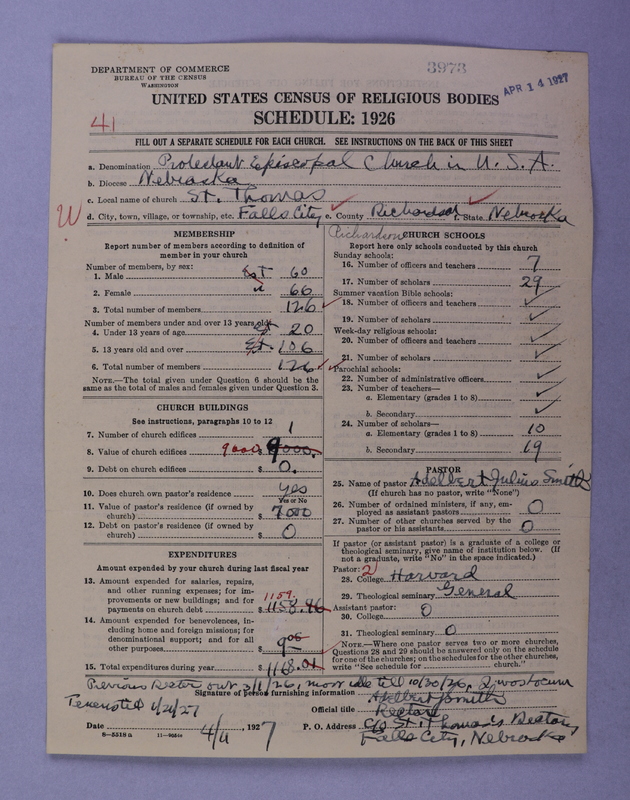 DEPARTMENT OF COMMERCE
BUREAU OF THE CENSUS
WASHINGTON
3973
APR 14 1927
UNITED STATES CENSUS OF RELIGIOUS BODIES
SCHEDULE: 1926
41
FILL OUT A SEPARATE SCHEDULE FOR EACH CHURCH. SEE INSTRUCTIONS ON THE BACK OF THIS SHEET
a. Denomination Protestant Episcopal Church in U. S. A.
b. Diocese Nebraska
c. Local name of church St. Thomas
d. City, town, village, or township, etc. Falls City e. County Richardson f. State Nebraska
Richardson
MEMBERSHIP
Report number of members according to definition of
member in your church
Number of members, by sex:
1. Male est 60
2. Female " 66
3. Total number of members 126
Number of members under and over 13 years old:
4. Under 13 years of age est 20
5. 13 years old and over est. 106
6. Total number of members 126
NOTE.—The total given under Question 6 should be the
same as the total of males and females given under Question 3.
CHURCH BUILDINGS
See instructions, paragraphs 10 to 12
7. Number of church edifices 1
8. Value of church edifices 9000 $ 9000.
9. Debt on church edifices $ 0.
10. Does church own pastor's residence yes
Yes or No
11. Value of pastor's residence (if owned by
church) $ 7000
12. Debt on pastor's residence (if owned by
church) $ 0
EXPENDITURES
Amount expended by your church during last fiscal year
13. Amount expended for salaries, repairs,
and other running expenses; for im-
provements or new buildings; and for
payments on church debt 1159. $ 1158.96
14. Amount expended for benevolences, in-
cluding home and foreign missions; for
denominational support; and for all
other purposes $ 9.05
15. Total expenditures during year $ 1168.01
CHURCH SCHOOLS
Report here only schools conducted by this church
Sunday schools:
16. Number of officers and teachers 7
17. Number of scholars 29
Summer vacation Bible schools:
18. Number of officers and teachers
19. Number of scholars
Week-day religious schools:
20. Number of officers and teachers
21. Number of scholars
Parochial schools:
22. Number of administrative officers
23. Number of teachers—
a. Elementary (grades 1 to 8)
b. Secondary
24. Number of scholars—
a. Elementary (grades 1 to 8) 10
b. Secondary 19
PASTOR
25. Name of pastor Adelbert Julius Smith
(If church has no pastor, write "None")
26. Number of ordained ministers, if any, em-
ployed as assistant pastors 0
27. Number of other churches served by the
pastor or his assistants 0
If pastor (or assistant pastor) is a graduate of a college or
theological seminary, give name of institution below. (If
not a graduate, write "No" in the space indicated.)
Pastor: 2
28. College Harvard
29. Theological seminary General
Assistant pastor:
30. College 0
31. Theological seminary 0
NOTE.—Where one pastor serves two or more churches,
Questions 28 and 29 should be answered only on the schedule
for one of the churches; on the schedules for the other churches,
write "See schedule for church."
Previous Rector out 3/1/26, till 10/30/26,
Signature of person furnishing information Adelbert J Smith
Official title Rector
Date 4/11, 1927
P. O. Address c/o St. Thomas Rectory
Falls City, Nebraska
8—5518a